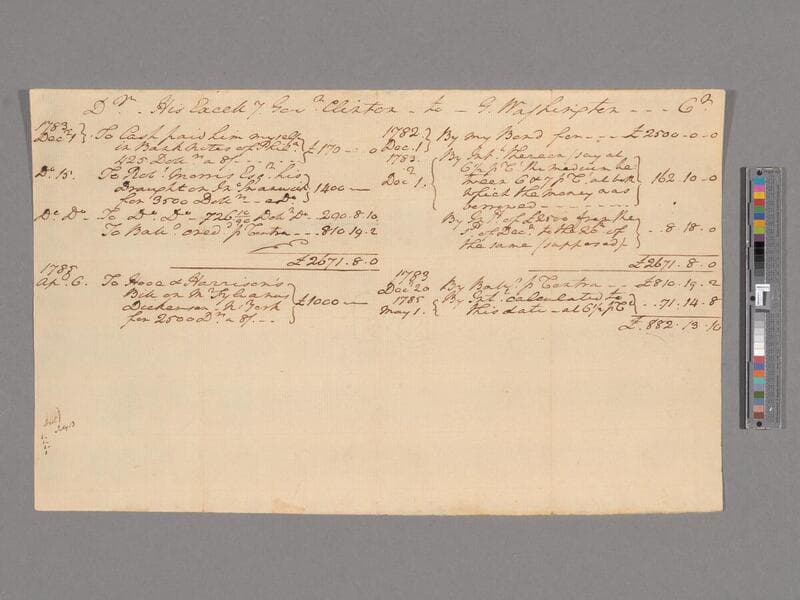 Dr. His Excelly Govr. Clinton to G. Washington --- Cr.
1783
Decr. 1 } To Cash paid him myself
in Bank Notes of Phila.
425 Dollrs. a 8/. £170 - 0
Do. 15. To Robt. Morris Esqr. his
Draught on
for 3500 Dollrs. a Do. 1400 —
Do. Do. To Do. Do. 726 10/90 Dollrs. Do. 290.8.10
To Balle. cred. pr. Contra --- 810.19.2
£2671.8.0
1785
Ap. 6. To Hooe & Harrison's
Bill on Mr.
Dickenson N. York
for 2500 Drs. a 8/. £1000 —
1782
Decr. 1 } By my Bond for --- £2500-0-0
1783
Decr. 1. By Intt. thereon (say at
6½ pr. Ct. the medium be
tween 6 & 7 pr. Ct. at both
which the money was
borrowed - - - 162.10-0
By Intt. of £2500 from the
1st. of Decr. to the 20th. of
the same (supposed) -- 8.18.0
£2671.8.0
1783
Decr. 20 By Balle. pr. Contra -- £810.19.2
1785
May 1. By Intt. calculated to
this date - at 6½ pr. Ct. .. 71.14.8
£.882.13.10